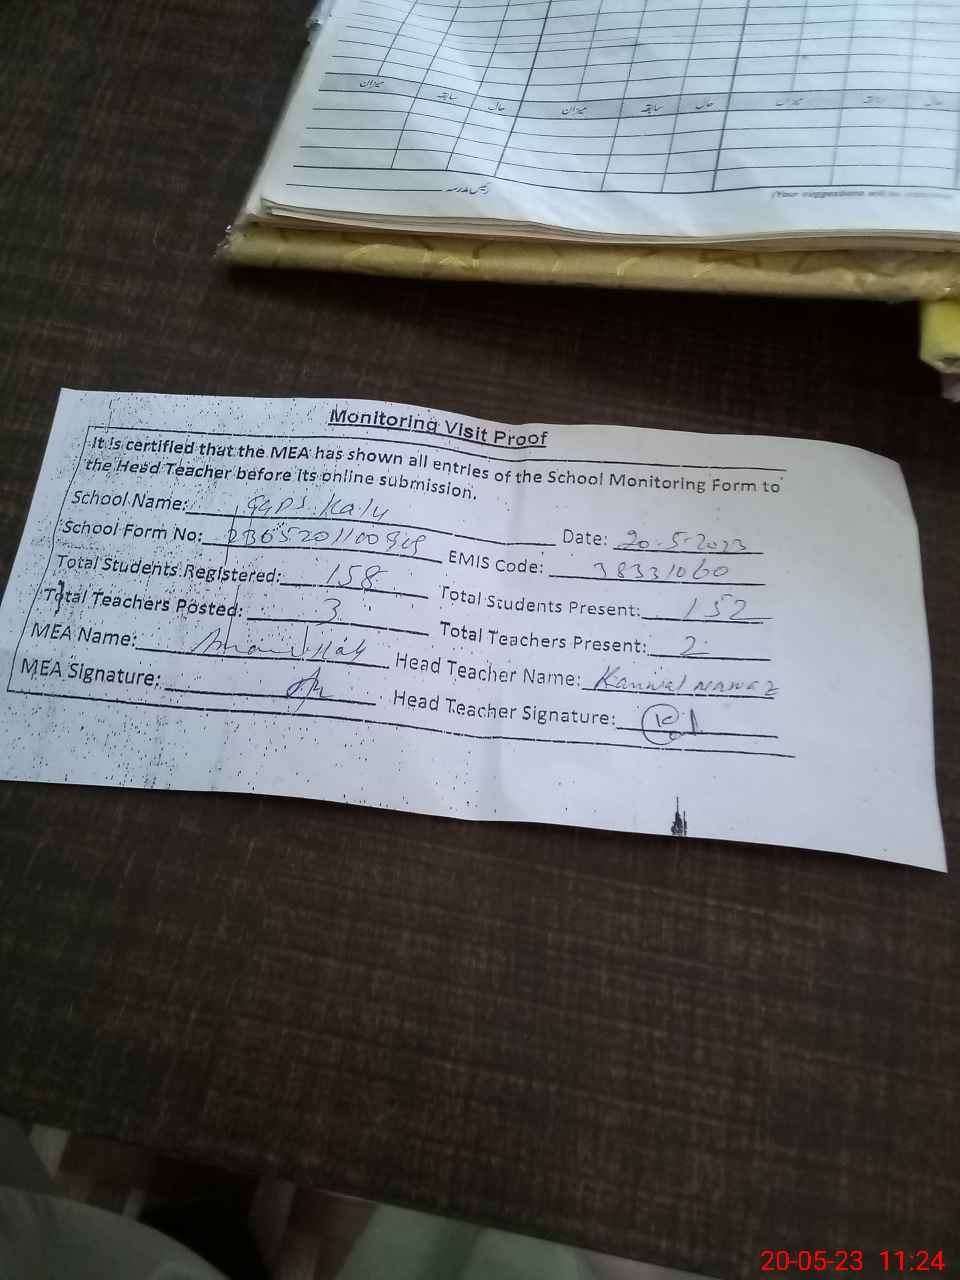 میزان سابقہ حال میزان سابقہ حال میزان سابقہ حال
رئیس مدرسہ
(Your suggestions will be
Monitoring Visit Proof
It is certified that the MEA has shown all entries of the School Monitoring Form to
the Head Teacher before its online submission.
School Name: GGPS Kalu Date: 20-5-2023
School Form No: EMIS Code: 38331060
Total Students Registered: 158 Total Students Present: 152
Total Teachers Posted: 3 Total Teachers Present: 2
MEA Name: Head Teacher Name: Kanwal nawaz
MEA Signature: Head Teacher Signature:
20-05-23 11:24